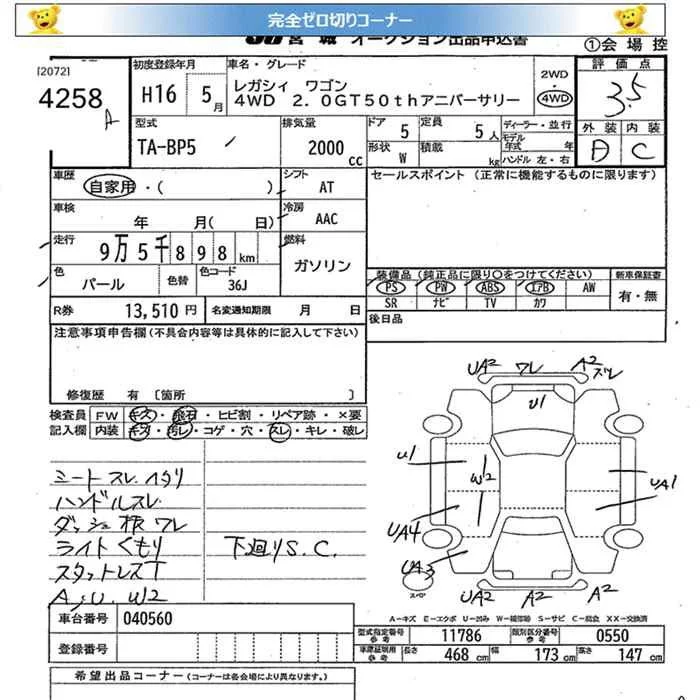 完全ゼロ切りコーナー
JU宮城 オークション出品申込書
①会場控
[2072]
4258
A
初度登録年月
H16 5月
車名・グレード
レガシィ ワゴン
4WD 2.0GT50thアニバーサリー
2WD
・
4WD
評価点
3.5
外装 内装
D C
型式
TA-BP5
排気量
2000cc
ドア 5
定員 5人
形状 W
積載 kg
ディーラー・並行
モデル年式 年
ハンドル 左・右
車歴
自家用・( )
シフト
AT
セールスポイント (正常に機能するものに限ります)
車検
年 月( 日)
冷房
AAC
走行
9万5千898km
燃料
ガソリン
色
パール
色替
色コード
36J
装備品(純正品に限り○をつけてください) 新車保証書
PS PW ABS エアB AW
SR ナビ TV カワ
有・無
R券 13,510円 名変通知期限 月 日
後日品
注意事項申告欄(不具合内容等は具体的に記入して下さい)
修復歴 有 〔箇所 〕
検査員記入欄
FW キズ・飛石・ヒビ割・リペア跡・×要
内装 キズ・汚レ・コゲ・穴・スレ・キレ・破レ
シートスレ.ヘタリ
ハンドルスレ
ダッシュ板ワレ
ライトくもり
下廻りS.C.
スタットレスT
A,U.W2
UA2 ワレ A2 ズレ
U1
U1
W2
UA1
UA4
UA3
スペア
UA2 A2 A2
A=キズ E=エクボ U=凹み W=補修跡 S=サビ C=腐食 XX=交換済
車台番号 040560
登録番号
型式指定番号参考 11786 類別区分番号参考 0550
車庫証明用参考 長さ 468cm 幅 173cm 高さ 147cm
希望出品コーナー (コーナーは各会場により異なります。)